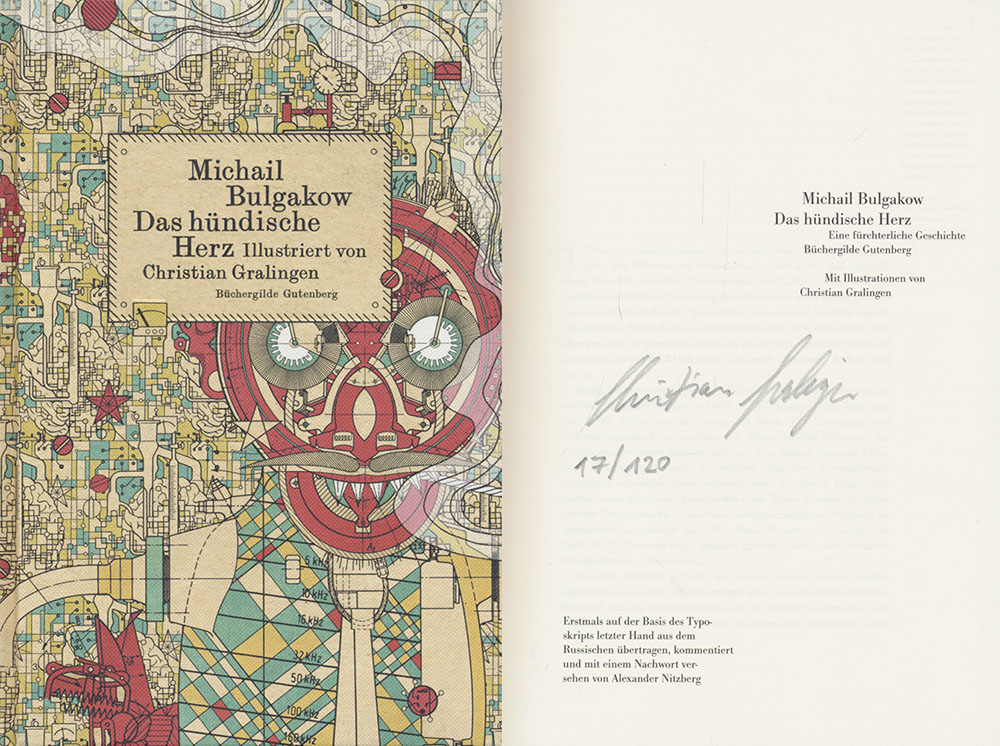 Michail
Bulgakow
Das hündische
Herz Illustriert von
Christian Gralingen
Büchergilde Gutenberg
5 kHz
10 kHz
16 kHz
32 kHz
50 kHz
100 kHz
160 kHz
Michail Bulgakow
Das hündische Herz
Eine fürchterliche Geschichte
Büchergilde Gutenberg
Mit Illustrationen von
Christian Gralingen
Christian Gralingen
17/120
Erstmals auf der Basis des Typo-
skripts letzter Hand aus dem
Russischen übertragen, kommentiert
und mit einem Nachwort ver-
sehen von Alexander Nitzberg